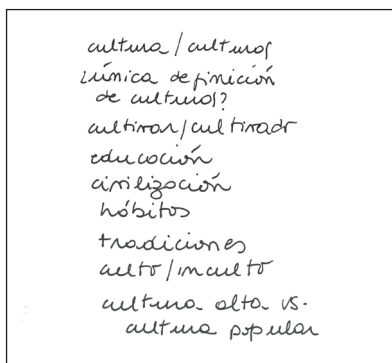 cultura/culturas
¿única definición
de culturas?
cultivar/cultivador
educación
civilización
hábitos
tradiciones
culto/inculto
cultura alta vs.
cultura popular